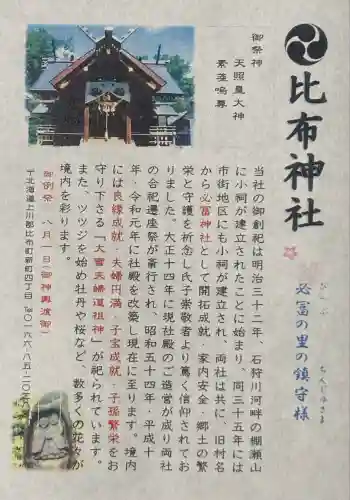 比布神社
ぴっぷ
ちんじゅさま
必冨の里の鎮守様
御祭神
天照皇大神
素盞嗚尊
当社の御創祀は明治三十二年、石狩川河畔の棚瀬山
に小祠が建立されたことに始まり、同三十五年には
市街地区にも小祠が建立され、両社は共に、旧村名
から必冨神社として開拓成就・家内安全・郷土の繁
栄と守護を祈念し氏子崇敬者より篤く信仰されてお
りました。大正十四年に現社殿のご造営が成り両社
の合祀遷座祭が斎行され、昭和五十四年・平成十
年・令和元年に社殿を改築し現在に至ります。境内
には良縁成就・夫婦円満・子宝成就・子孫繁栄をお
守り下さる「大雪夫婦道祖神」が祀られています。
また、ツツジを始め牡丹や桜など、数多くの花々が
境内を彩ります。
御例祭 八月一日(御神輿渡御)
〒北海道上川郡比布町新町四丁目